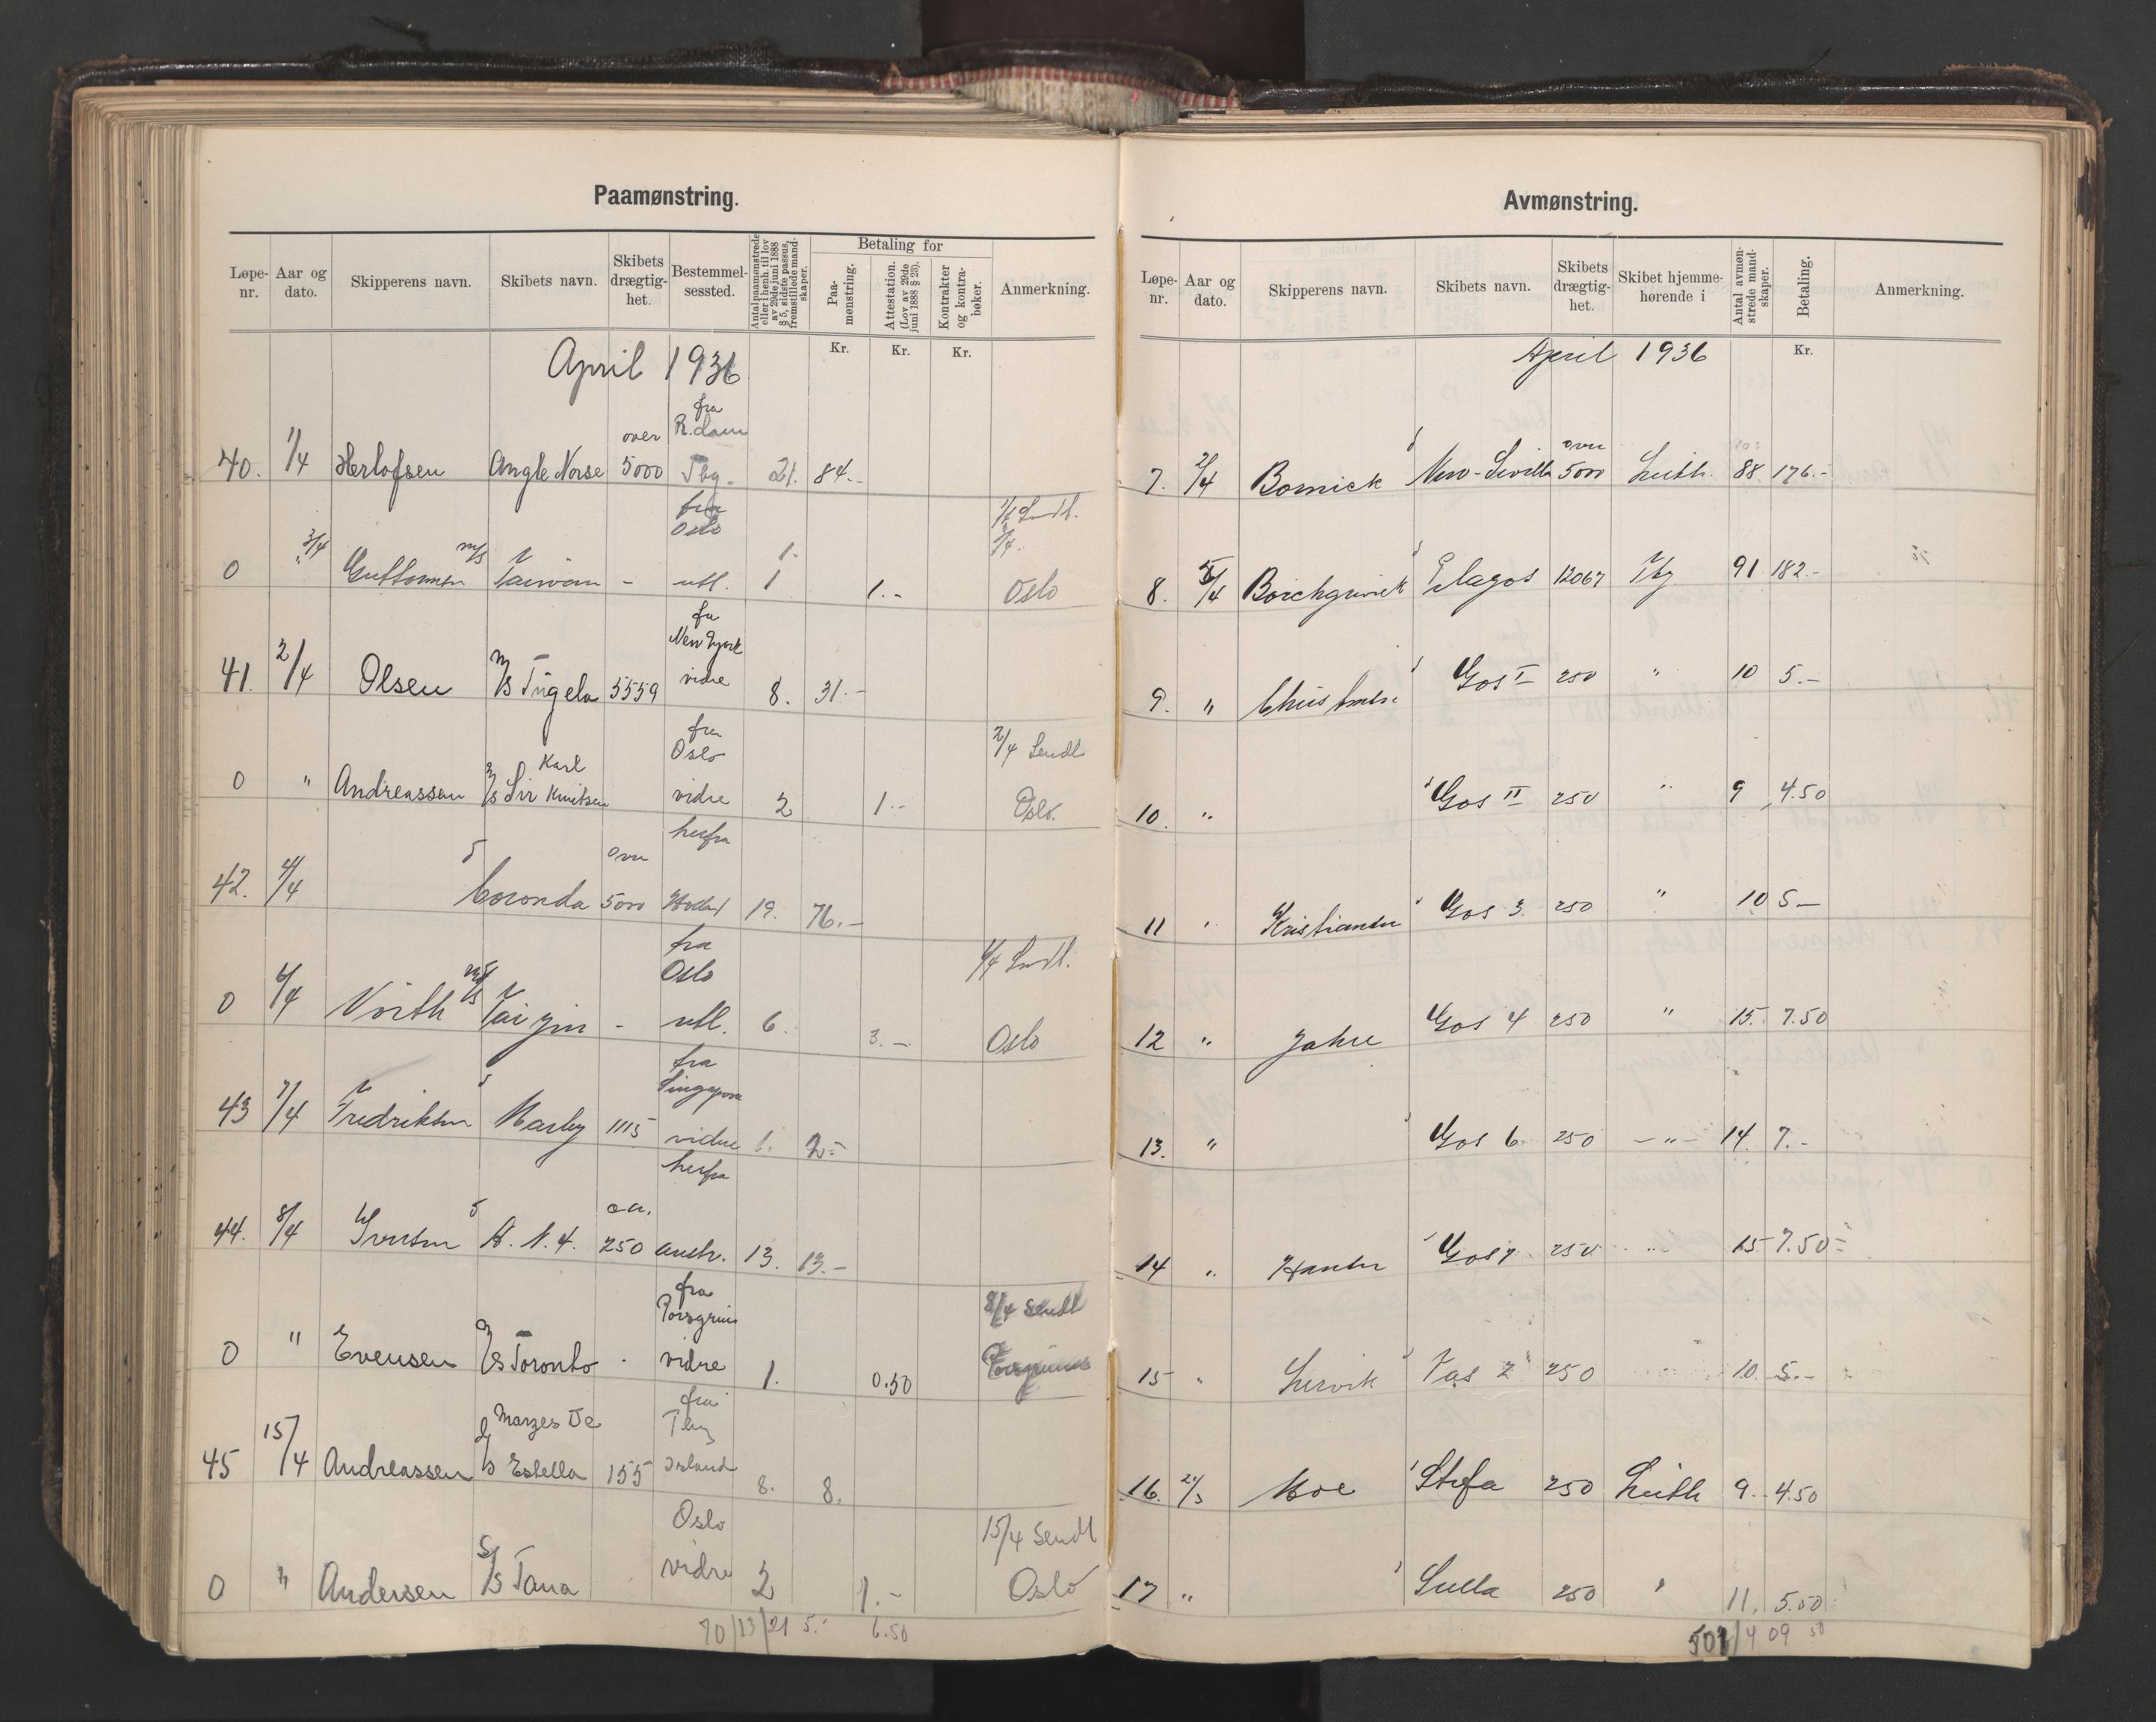 Paamønstring.
Løpe-nr. Aar og dato. Skipperens navn. Skibets navn. Skibets drægtig-het. Bestemmel-sessted. Antal paamønstrede eller i henh. til lov av 29de juni 1888 § 5, sidste passus, fremstillede mand-skaper. Betaling for Paa-mønstring. Attestation. (Lov av 29de juni 1888 § 23). Kontrakter og kontra-bøker. Anmerkning.
Kr. Kr. Kr.
April 1936
fra
over R.dam
40. 1/4 Herlofsen Angle Norse 5000 Tbg. 21. 84.-
fra Oslo
0 3/4 m/s Taiwan - utl. 1 1.- Oslo
fra
New York
41. 2/4 Olsen M/S Tugela 5559 vidre 8. 31.-
fra
Oslo 2/4 Sendt
Karl
0 " Andreassen M/S Sir Knutsen vidre 2 1.- Oslo.
herfra
42. 4/4 Coronda 5000 19. 76.-
fra
Oslo
0 6/4 North m/s Tai Yin - utl. 6. 3.- Oslo
fra
43 7/4 Fredriksen Marby 1115 vidre 1. 2.-
herfra
44. 8/4 Iversen A. N. 4. 250 austr. 13. 13.-
fra
Porsgrun 8/4 Sendt
0 " Evensen M/S Toronto - vidre 1. 0.50 Porsgrunn
fra
Tbg
45 15/4 Andreassen Estella 155 Island 8. 8.
Oslo 15/4 Sendt
0 " Andersen S/S Tana vidre 2 1.- Oslo
70/13/21 5.- 6.50
Avmønstring.
Løpe-nr. Aar og dato. Skipperens navn. Skibets navn. Skibets drægtig-het. Skibet hjemme-hørende i Antal avmøn-strede mand-skaper. Betaling. Anmerkning.
Kr.
April 1936
over
7. 2/4 Bornick New-Sevilla 5000 Leith. 88 176.-
8. 5/4 Borchgrevink Pelagos 12067 Tbg 91 182.-
9. " Christensen Gos I 250 " 10 5.-
10. " Gos II 250 " 9 4.50
11 " Kristiansen Gos 3. 250 " 10 5-
12 " Jahre Gos 4 250 " 15. 7.50
13. " Gos 6 250 -"- 14. 7.-
14 " Hansen Gos 7 250 " 15 7.50
15 " Lervik Vas 2 250 10. 5.-
16. Moe Stefa 250 Leith 9. 4.50
17 " Sulla 250 " 11. 5.50